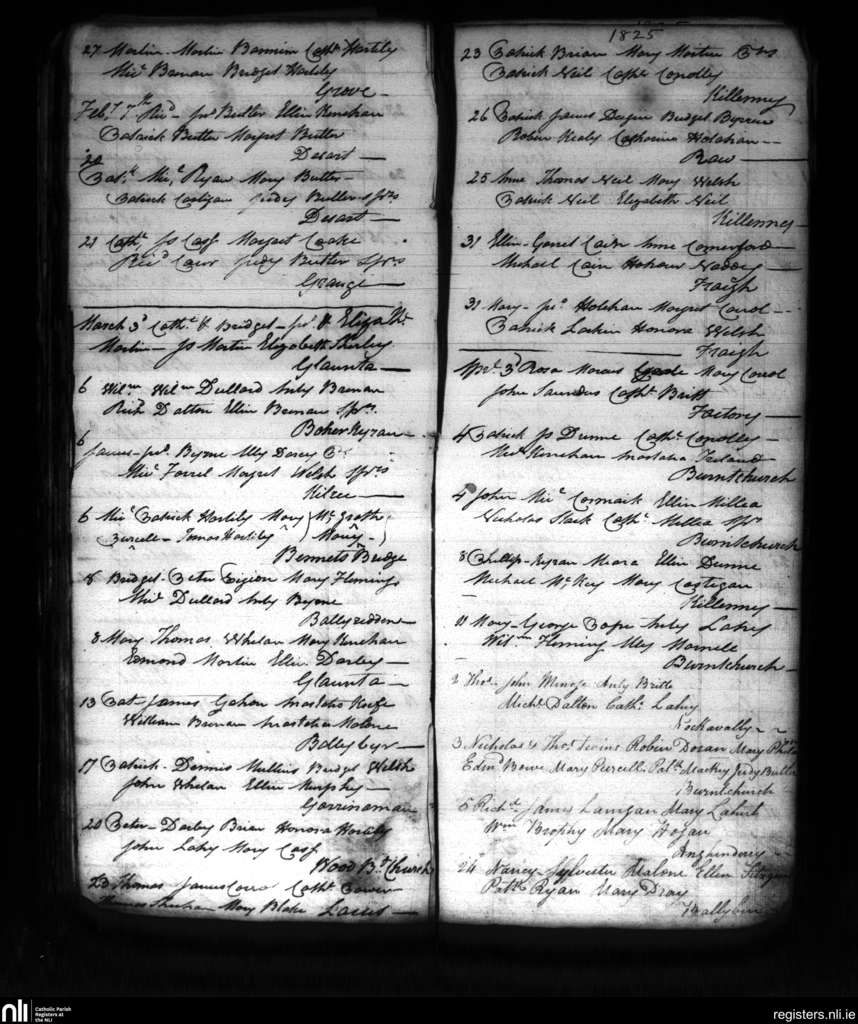 27 Martin - Martin Bannim Cathe Hartily
Micl Brenan Bridget Hartily
Grove
Feby 7th Ricd - Jas Butler Ellin Renehan
Patrick Butler Margret Butler
Desart
20
Patk Micl Ryan Mary Butler
Patrick Costigan Judy Butler Sprs
Desart
21 Cathe Js Cass Margret Cooke
Ricd Judy Butler Sprs
Grange
March 3d Cathe & Bridget - &
Martin Js Martin Elizabeth
Glaunta
6 Wilm Wilm Dullard Anty Brenan
Richd Dalton Ellin Brenan Sprs
6
James Byrne Elly Darcy
Micl Farrel Margret Welsh Sprs
Kilree
6 Micl Patrick Hartily Mary McGrath
Purcell James Hartily Mary
Bennets Bridge
8 Bridget Peter Mary Fleming
Micl Dullard Anty Byrne
Ballyreddin
8 Mary Thomas Whelan Mary Renehan
Edmond Martin Ellin Darley
Glaunta
13 Pat - James Gahan Anastatia Keefe
William Brenan Anastatia Malone
Ballybur
17 Patrick - Dennis Mullins Bridget Welsh
John Whelan Ellin Murphy
Garrinaman
20 Peter - Darby Brian Honora Hartily
John Lahy Mary Cass
Wood Bt Church
20 Thomas James Cathe
Thomas Mary Blake
1825
23 Patrick Brian Mary Martin
Patrick Neil Cathe Conolley
Killenney
26 Patrick James Bridget Byrne
Robin Healy Catharina Holahan
Raw
25 Anne Thomas Neil Mary Welsh
Patrick Neil Elizabeth Neil
Killenney
31 Ellin - Garret Cain Anne Comerford
Michael Cain Honour
Fraigh
31 Mary - Jas Holahan Margret Carrol
Patrick Larkin Honora Welsh
Fraigh
Aprl 3d Rosa Mary Carrol
John Saunders Cathe Britt
Factory
4 Patrick Js Dunne Cathe Conolley
Micl Renehan Anastatia Ireland
Burntchurch
4 John Micl Cormack Ellin Millea
Nicholas Slack Cathe Millea Sprs
Burntchurch
8 Phillip - Kyran Meara Ellin Dunne
Michael McKey Mary Costegan
Killenney
11 Mary - George Pope Anty Lahey
Wilm Fleming Elly
Burntchurch
2 Thos John Anty Britt
Michl Dalton Cathe Lahy
Knockavally
3 Nicholas & Thos Twins Robin Doran Mary
Edmd Bowe Mary Purcell Patk Mackey Judy Butler
Burntchurch
5 Richd James Lanigan Mary
Wm Brophy Mary Hogan
24 Nancy Sylvester Malone Ellen
Patk Ryan Mary
Ballybur
nli
Catholic Parish
Registers at
the NLI
registers.nli.ie